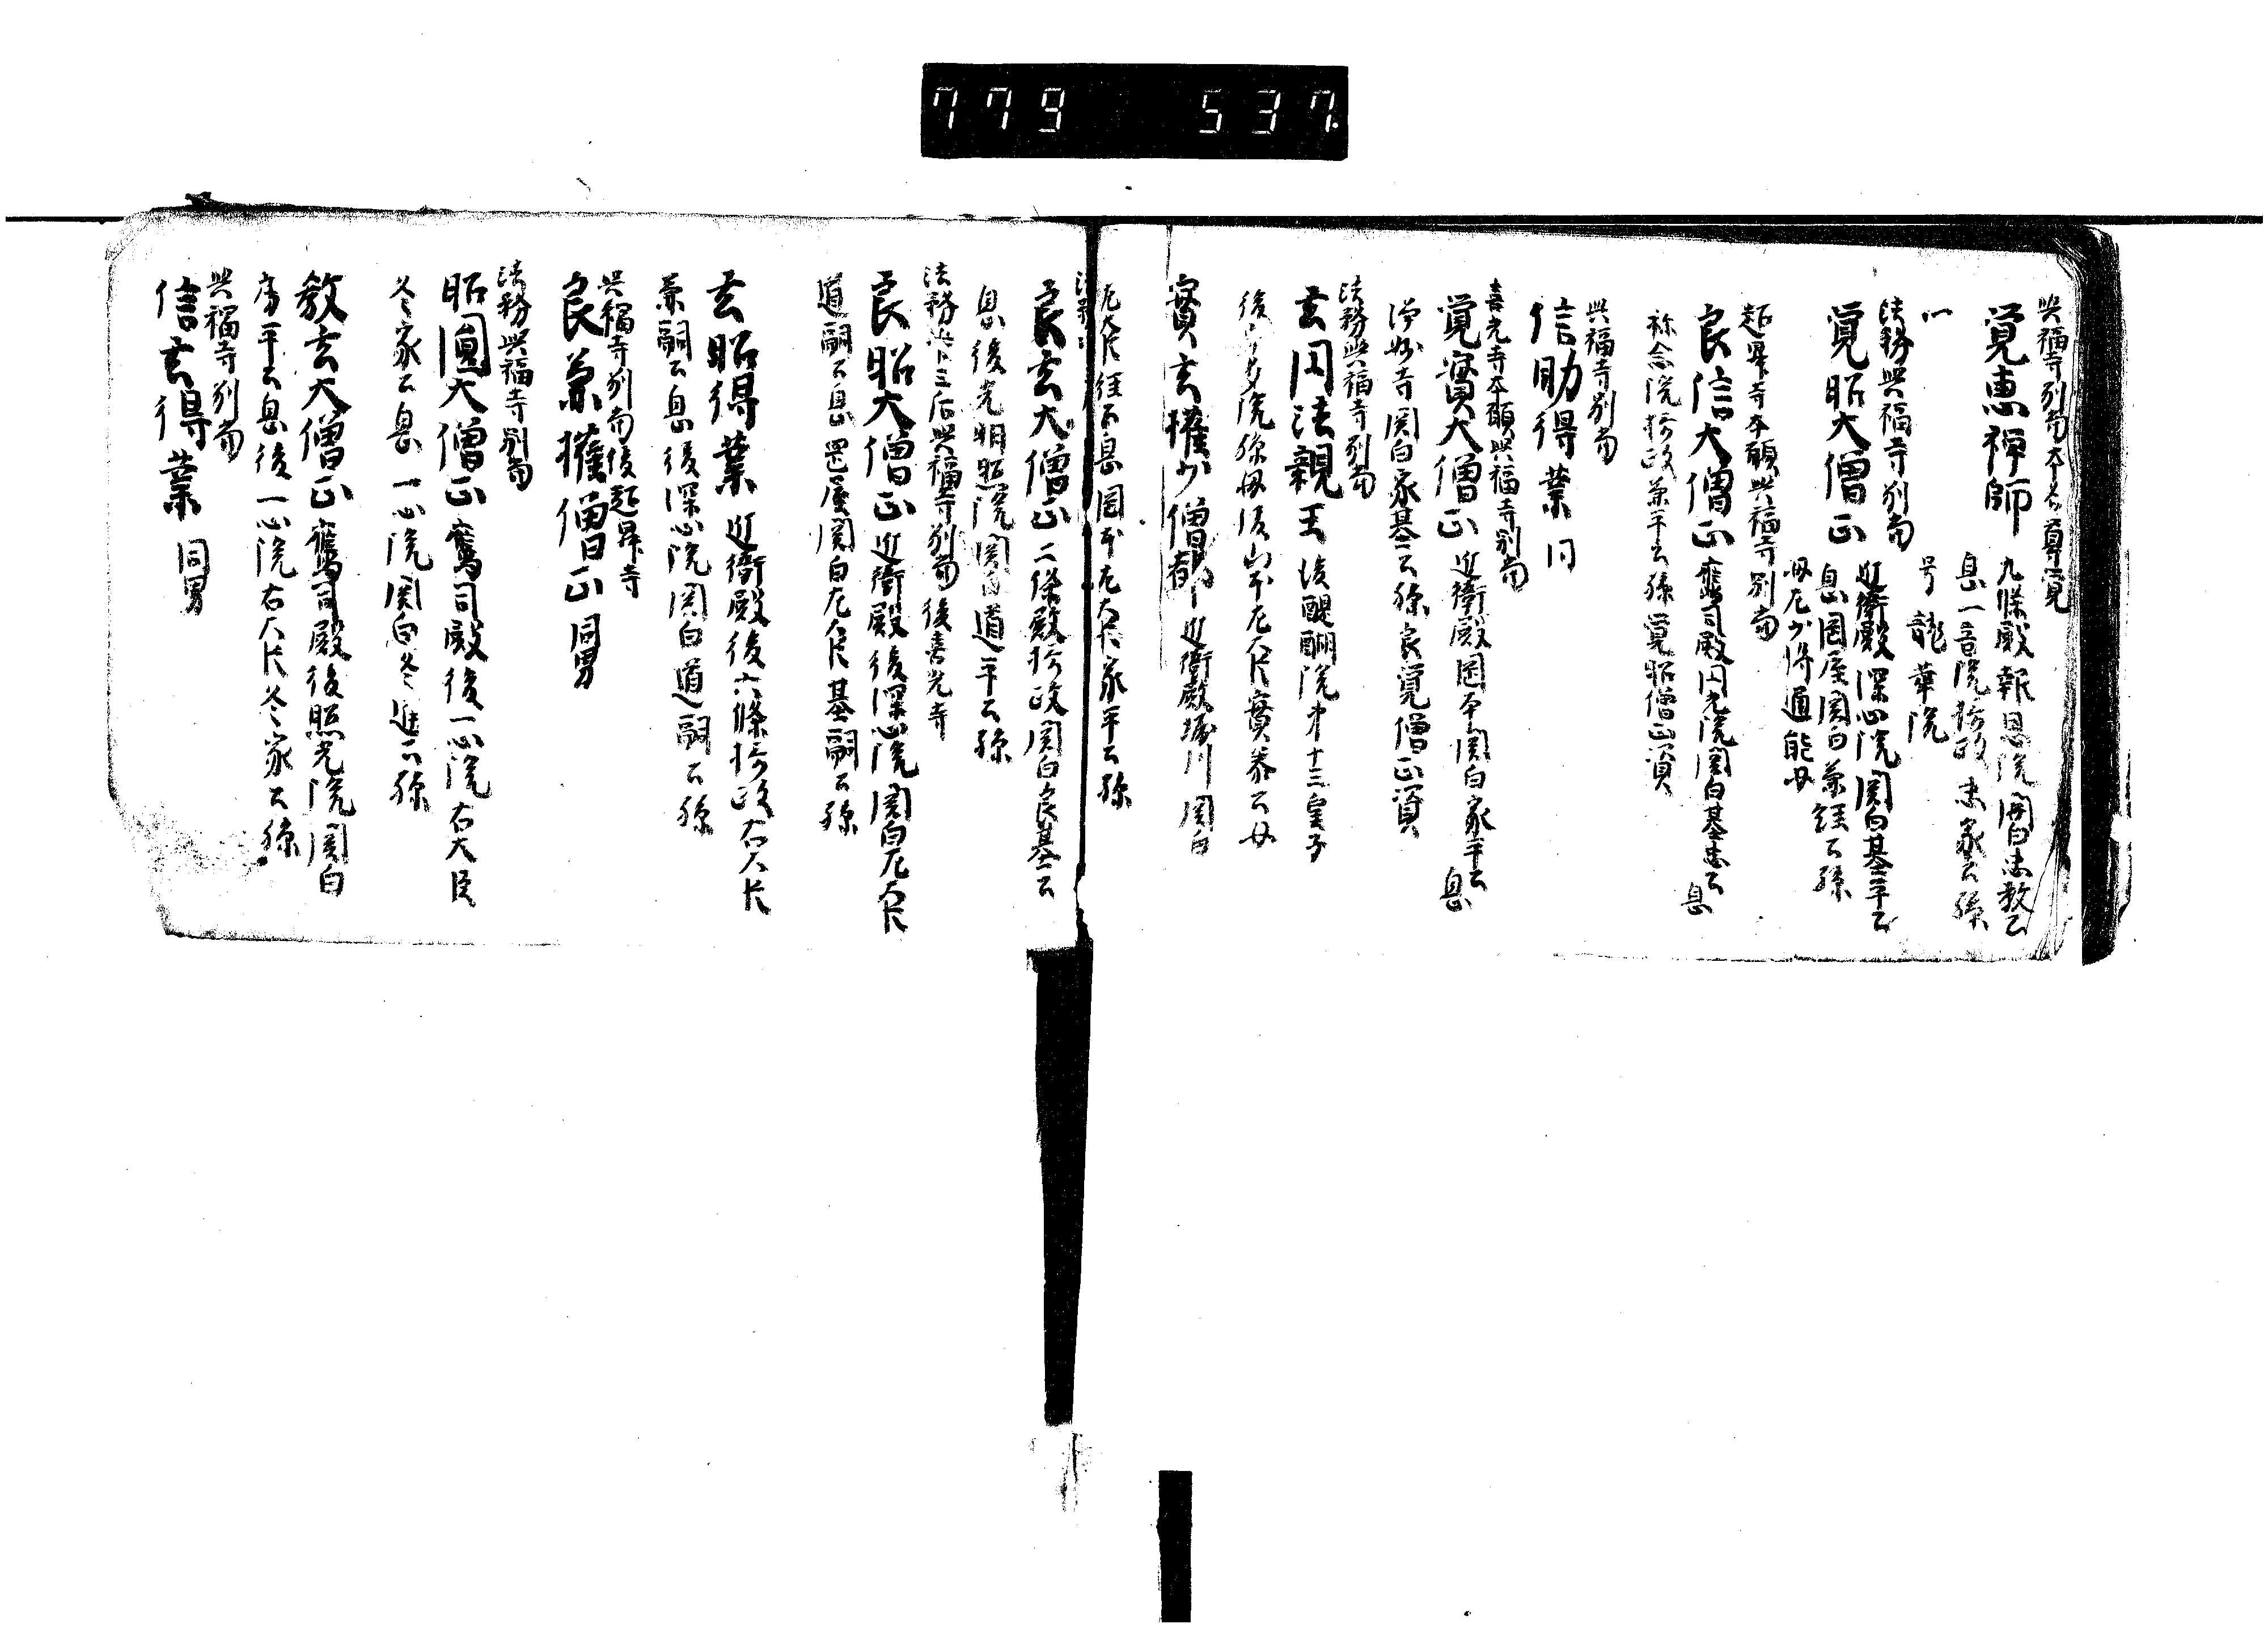 779 537
興福寺別當 本名尊覚
覚恵禅師 九條殿報恩院関白忠教公
息一音院摂政忠家公孫
号龍華院
一
法務興福寺別當
覚昭大僧正 近衛殿深心院関白基平公
息岡屋関白兼経公孫
母左少将通能女
超昇寺本願興福寺別當
良信大僧正 鷹司殿円光院関白基忠公息
称念院摂政兼平公孫 覚昭僧正資
興福寺別當
信助得業 同
喜光寺本願興福寺別當
覚實大僧正 近衛殿岡本関白家平公息
浄妙寺関白家基公孫 良覚僧正資
法務興福寺別當
玄円法親王 後醍醐院第十三皇子
後宇多院孫母後山本左大臣實泰公女
實玄権少僧都 近衛殿堀川関白
左大臣経忠公息岡本左大臣家平公孫
法務
良玄大僧正 二條殿摂政関白良基公
息後光明照院関白道平公孫
法務准三后興福寺別當後喜光寺
良昭大僧正 近衛殿後深心院関白左大臣
道嗣公息岡屋関白左大臣基嗣公孫
玄昭得業 近衛殿後六條摂政右大臣
兼嗣公息後深心院関白道嗣公孫
興福寺別當後超昇寺
良兼権僧正 同男
法務興福寺別當
昭圓大僧正 鷹司殿後一心院右大臣
冬家公息一心院関白冬通公孫
教玄大僧正 鷹司殿後照光院関白
房平公息後一心院右大臣冬家公孫
興福寺別當
信玄得業 同男